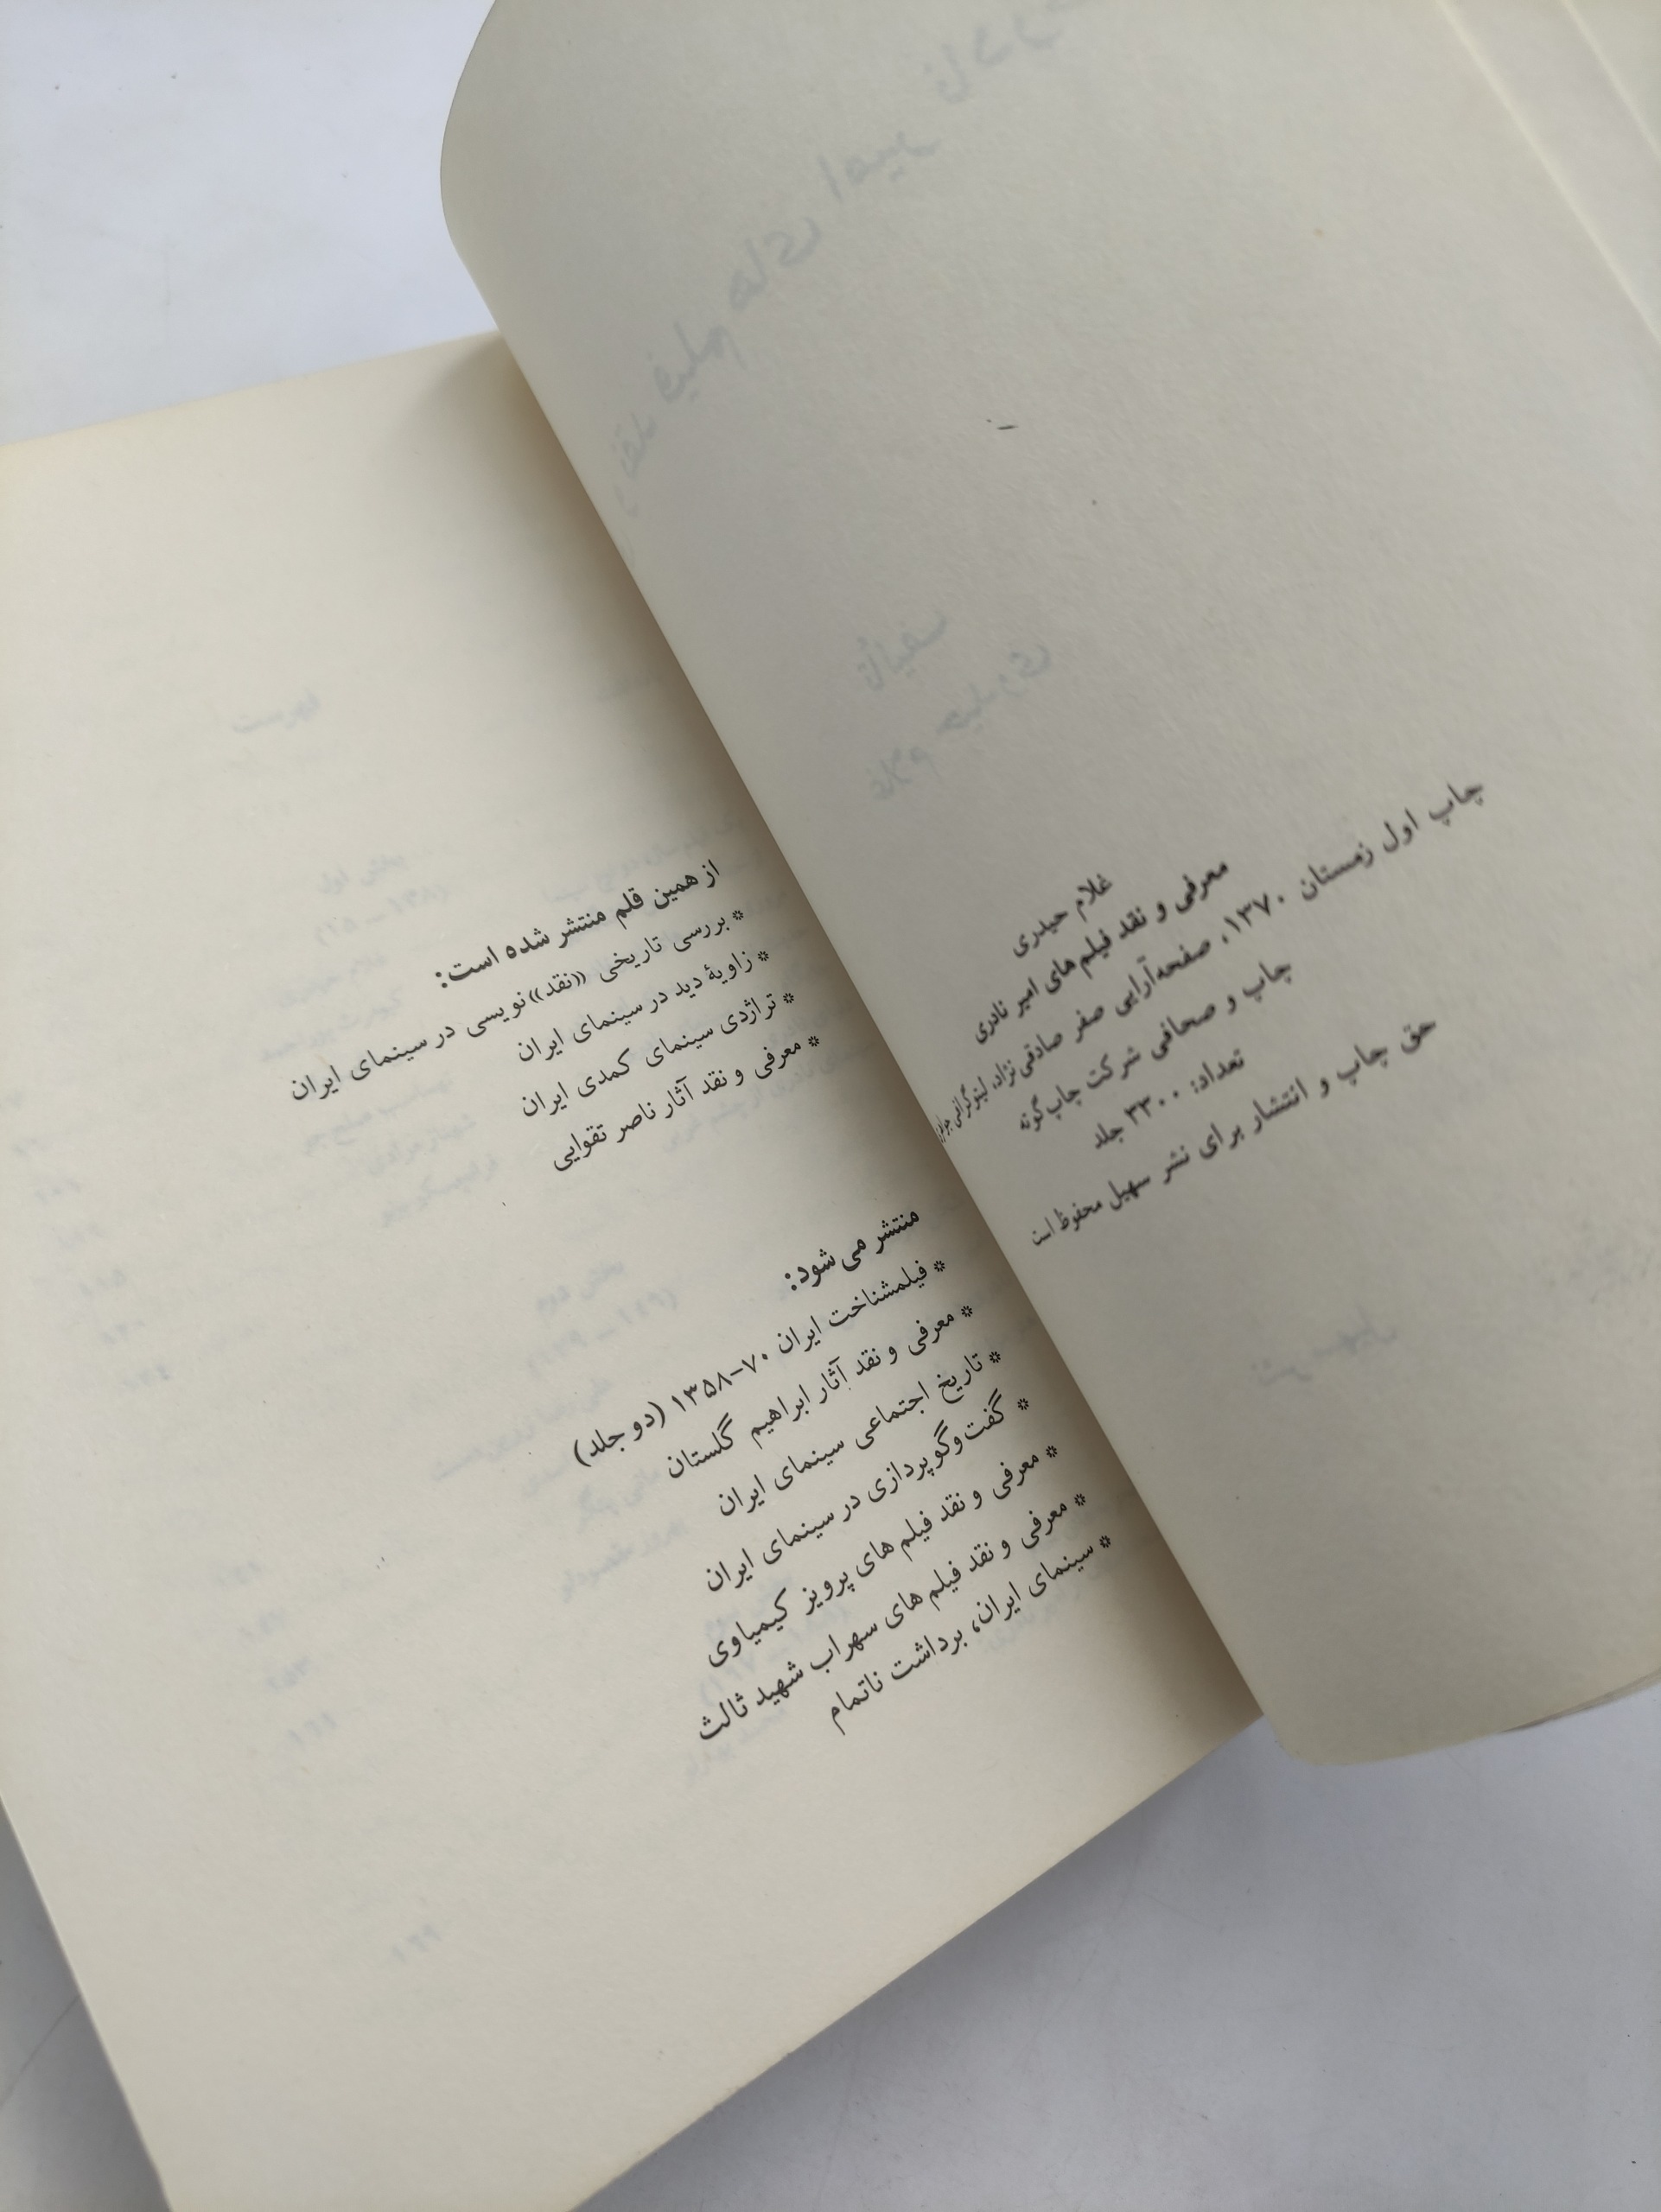 غلام حیدری
معرفی و نقد فیلم‌های امیر نادری
چاپ اول زمستان ۱۳۷۰، صفحه‌آرایی صفر صادقی‌نژاد، لیتوگرافی
چاپ و صحافی شرکت چاپ گوته
تعداد: ۳۳۰۰ جلد
حق چاپ و انتشار برای نشر سهیل محفوظ است
از همین قلم منتشر شده است:
* بررسی تاریخی «نقد» نویسی در سینمای ایران
* زاویهٔ دید در سینمای ایران
* تراژدی سینمای کمدی ایران
* معرفی و نقد آثار ناصر تقوایی
منتشر می‌شود:
* فیلمشناخت ایران ۷۰-۱۳۵۸ (دو جلد)
* معرفی و نقد آثار ابراهیم گلستان
* تاریخ اجتماعی سینمای ایران
* گفت‌وگوپردازی در سینمای ایران
* معرفی و نقد فیلم های پرویز کیمیاوی
* معرفی و نقد فیلم های سهراب شهید ثالث
* سینمای ایران، برداشت ناتمام